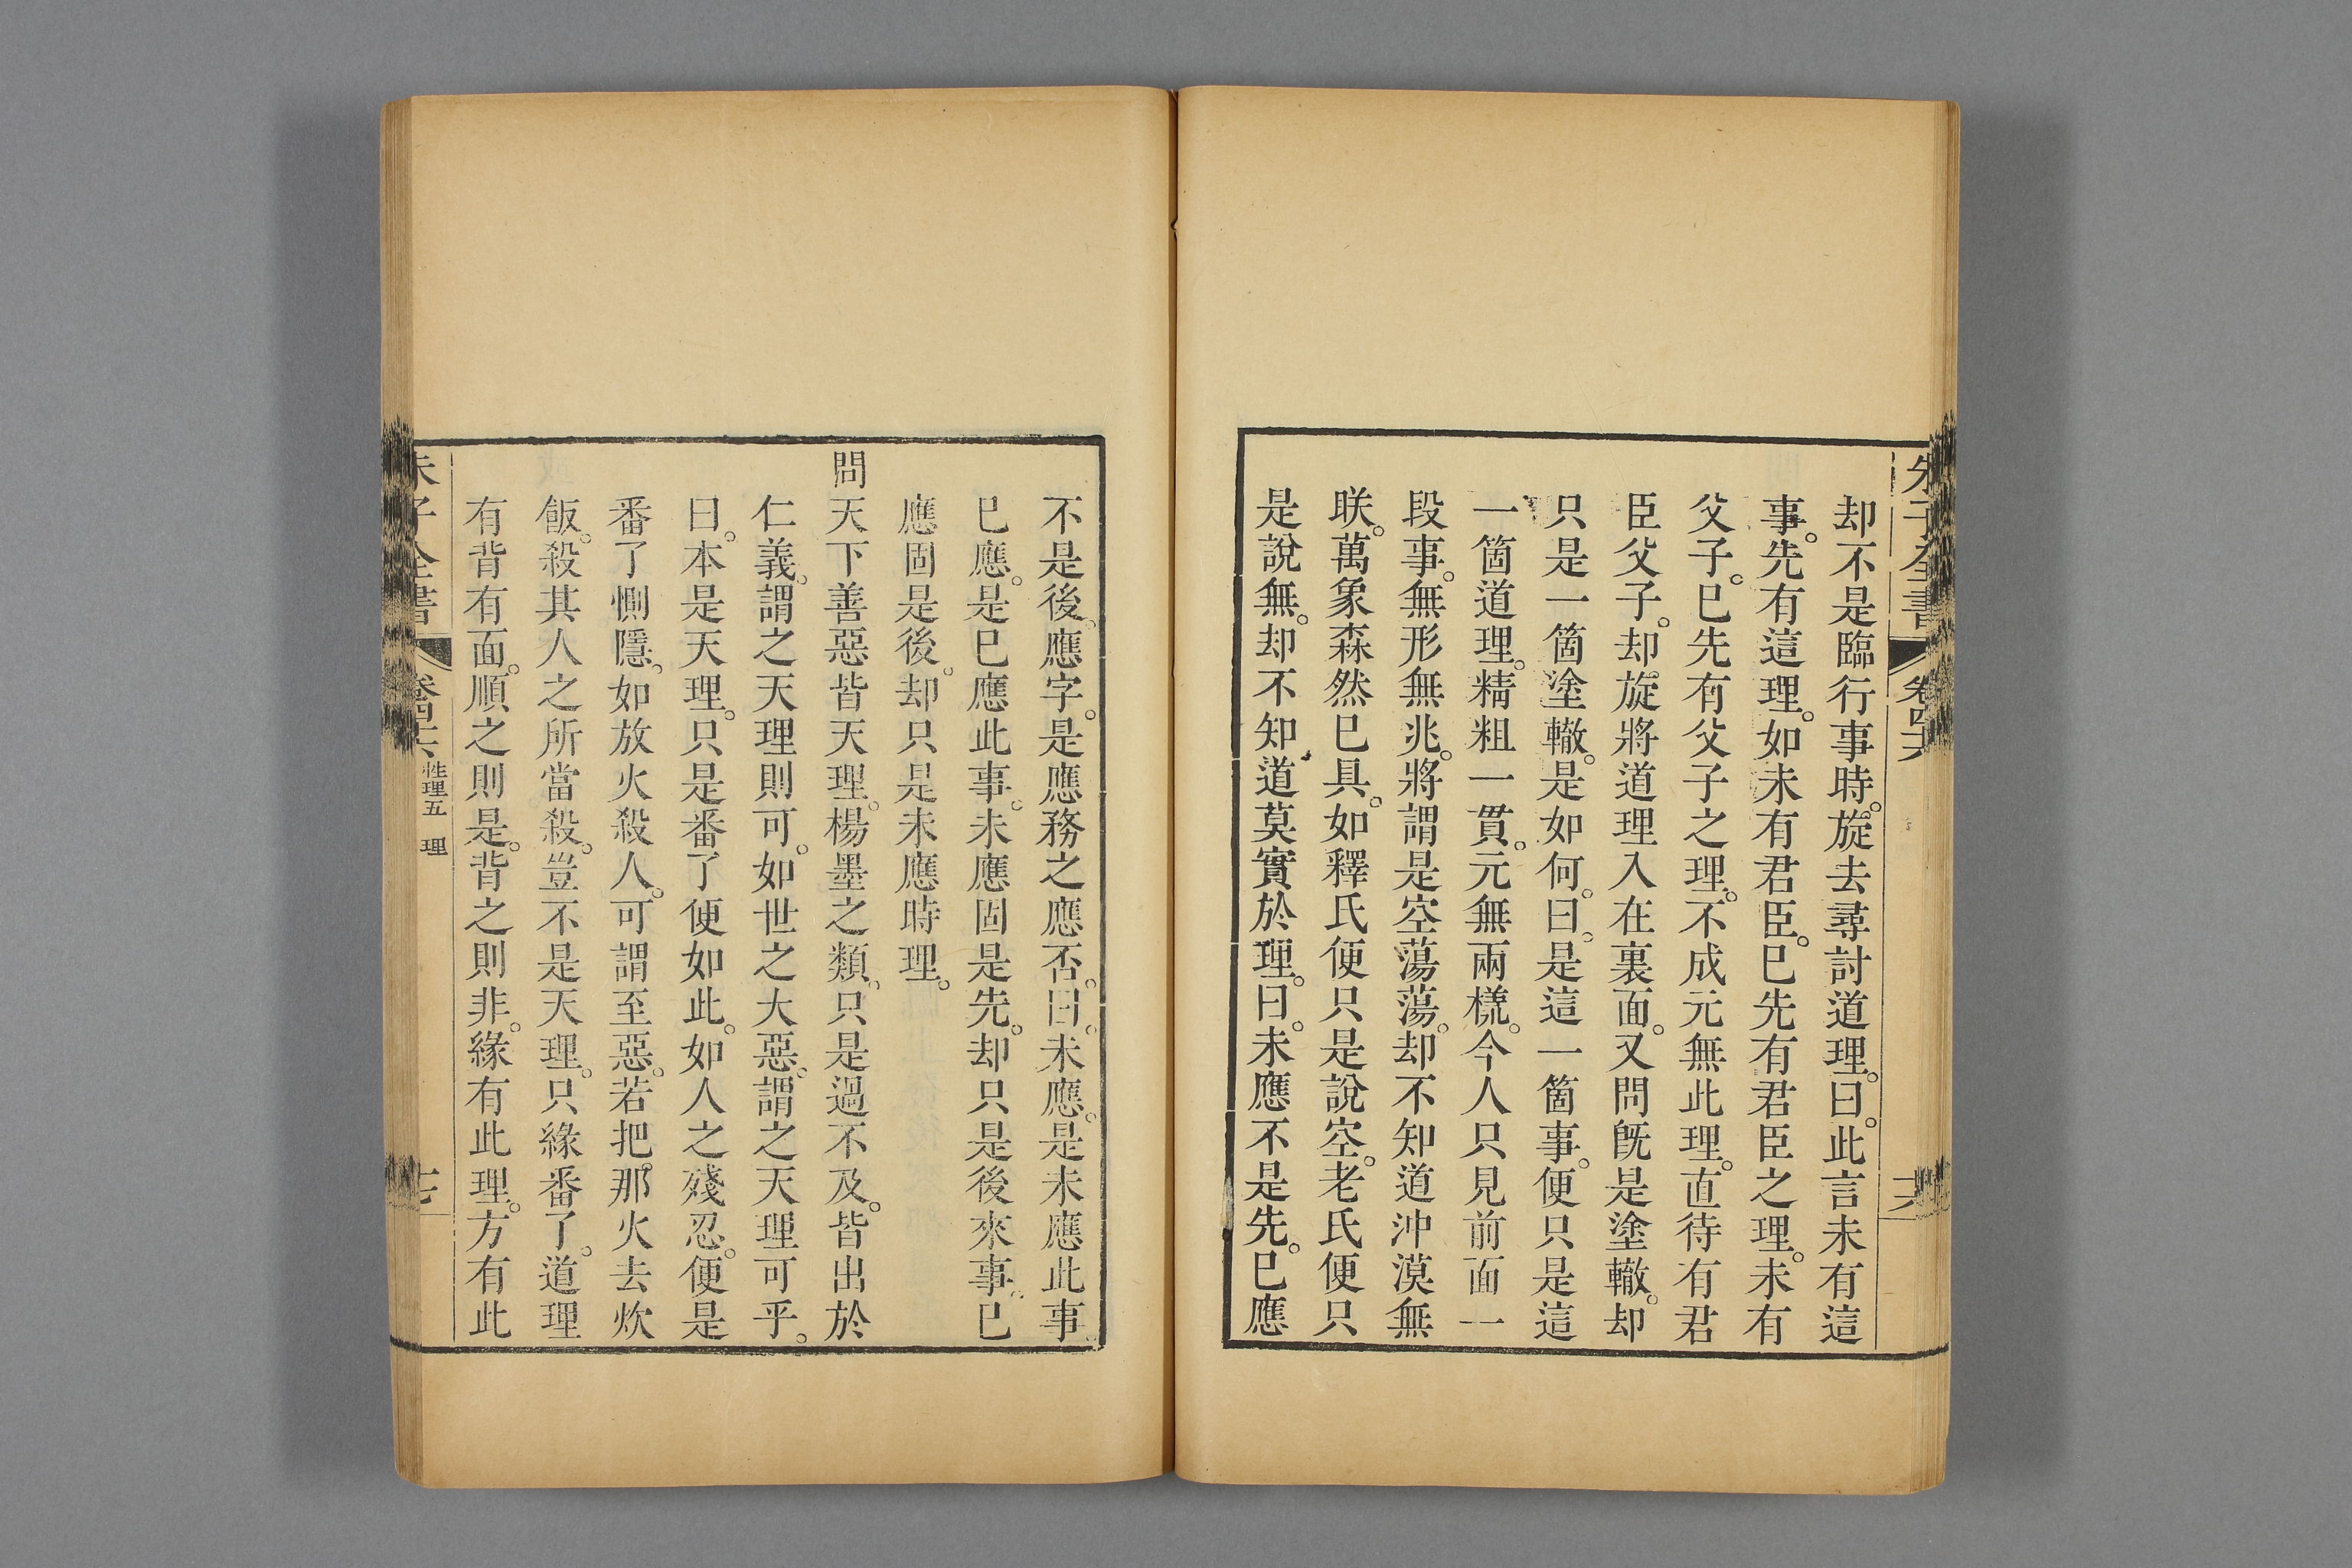 朱子全書 卷四六 十六
却不是臨行事時。旋去尋討道理。曰。此言未有這
事。先有這理。如未有君臣。已先有君臣之理。未有
父子。已先有父子之理。不成元無此理。直待有君
臣父子。却旋將道理入在裏面。又問旣是塗轍。却
只是一箇塗轍。是如何。曰。是這一箇事。便只是這
一箇道理。精粗一貫。元無兩㨾。今人只見前面一
段事。無形無兆。將謂是空蕩蕩。却不知道沖漠無
朕。萬象森然已具。如釋氏便只是說空。老氏便只
是說無。却不知道莫實於理。曰。未應不是先。已應
不是後。應字。是應務之應否。曰。未應。是未應此事
已應。是已應此事。未應固是先。却只是後來事。已
應固是後。却只是未應時理。
問天下善惡皆天理。楊墨之類。只是過不及。皆出於
仁義。謂之天理則可。如世之大惡。謂之天理可乎。
曰。本是天理。只是番了便如此。如人之殘忍。便是
番了惻隱。如放火殺人。可謂至惡。若把那火去炊
飯。殺其人之所當殺。豈不是天理。只緣番了。道理
有背有面。順之則是。背之則非。緣有此理。方有此
朱子全書 卷四六 性理五 理 十七